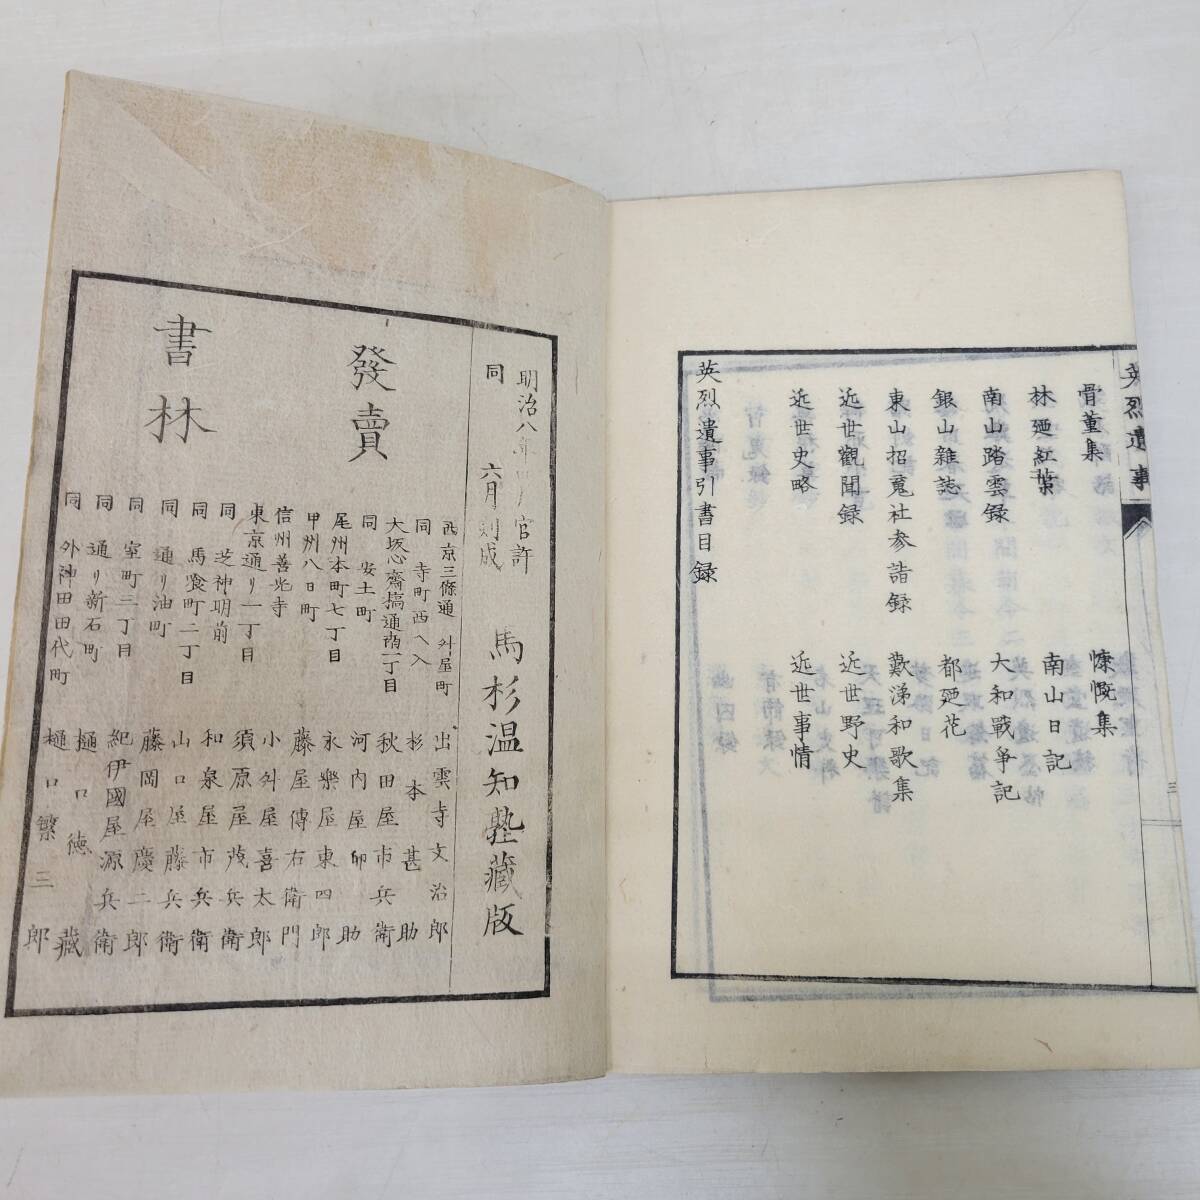 英烈遺事
三
骨董集
慷慨集
林廼紅葉
南山日記
南山踏雲録
大和戰爭記
銀山雜誌
都廼花
東山招䰟社参詣録
歎涕和歌集
近世觀聞録
近世野史
近世史略
近世事情
英烈遺事引書目録
明治八年四月官許
同 六月刻成
馬杉温知塾藏版
發賣
書林
西京三條通舛屋町 出雲寺文治郎
同 寺町西ヘ入 杉本甚助
大坂心齋橋通南一丁目 秋田屋市兵衛
同 安土町 河内屋卯助
尾州本町七丁目 永樂屋東四郎
甲州八日町 藤屋傳右衛門
信州善光寺 小舛屋喜太郎
東京通リ一丁目 須原屋茂兵衛
同 芝神明前 和泉屋市兵衛
同 馬喰町二丁目 山口屋藤兵衛
同 通リ油町 藤岡屋慶二郎
同 室町三丁目 紀伊國屋源兵衛
同 通リ新石町 樋口徳藏
同 外神田田代町 樋口繁三郎